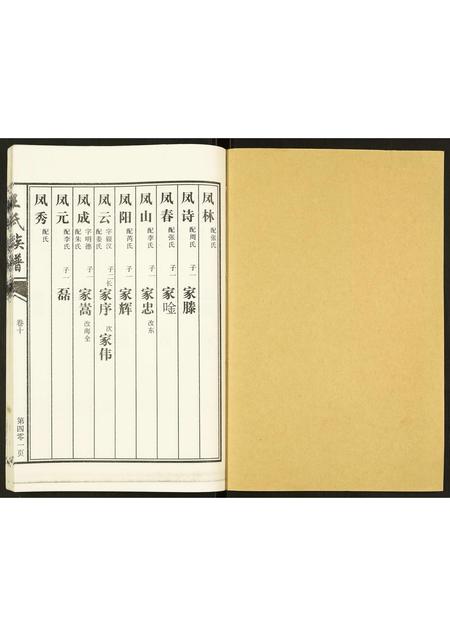 凤林 配张氏
凤诗 配周氏 子一 家滕
凤春 配张氏 子一 家唫
凤山 配李氏 子一 家忠 改东
凤阳 配芮氏 子一 家辉
凤云 字毅汉 配姜氏 子二 长 家序 次 家伟
凤成 字明德 配朱氏 子一 家嵩 改海全
凤元 配李氏 子一 磊
凤秀 配氏
王氏族谱
卷十
第四零一页